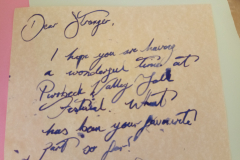 Dear Stranger,
I hope you are having
a wonderful time at
Valley Fall
Festival. What
has been your favourite
part so far?